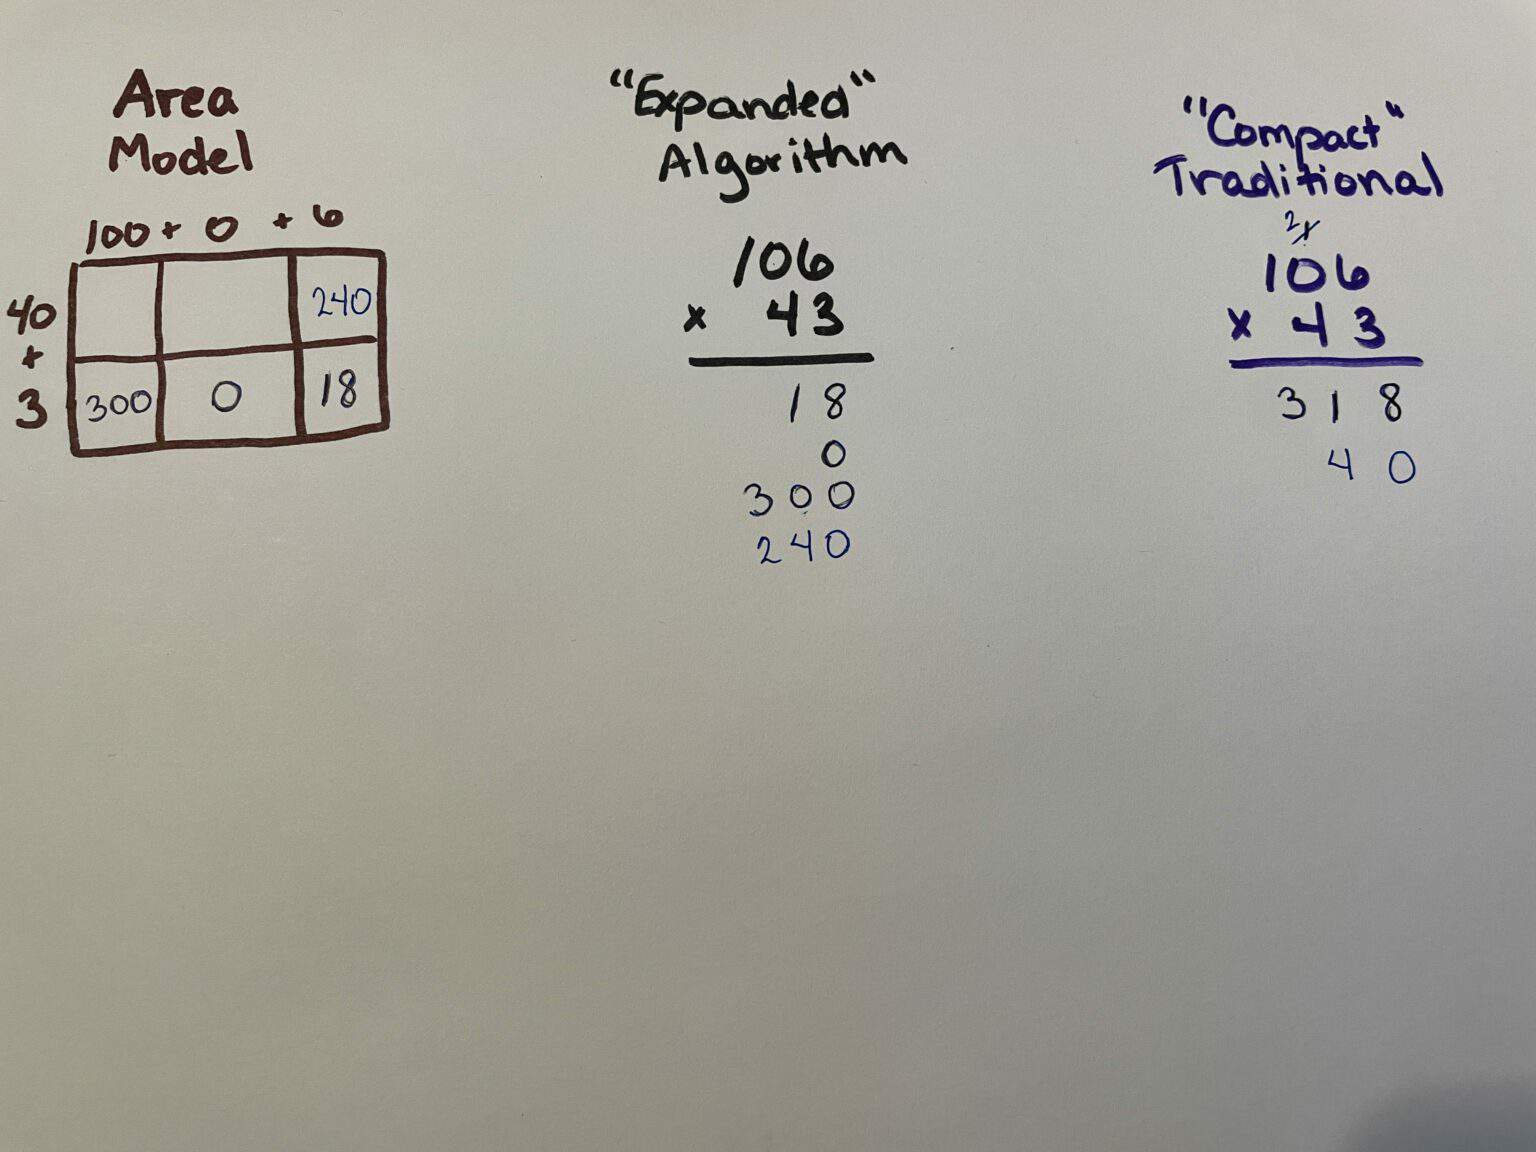 Area
Model
100 + 0 + 6
240
40
+
3
300 0 18
"Expanded"
Algorithm
106
x 43
18
0
300
240
"Compact"
Traditional
2 1
106
x 43
318
40